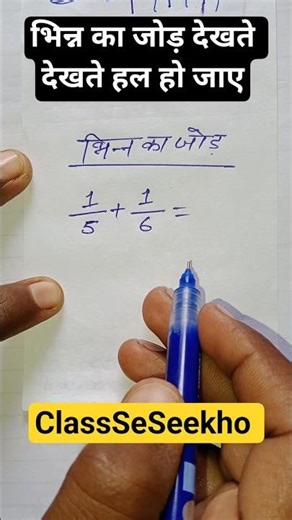 भिन्न का जोड़ देखते
देखते हल हो जाए
भिन्न का जोड़
1/5 + 1/6 =
ClassSeSeekho